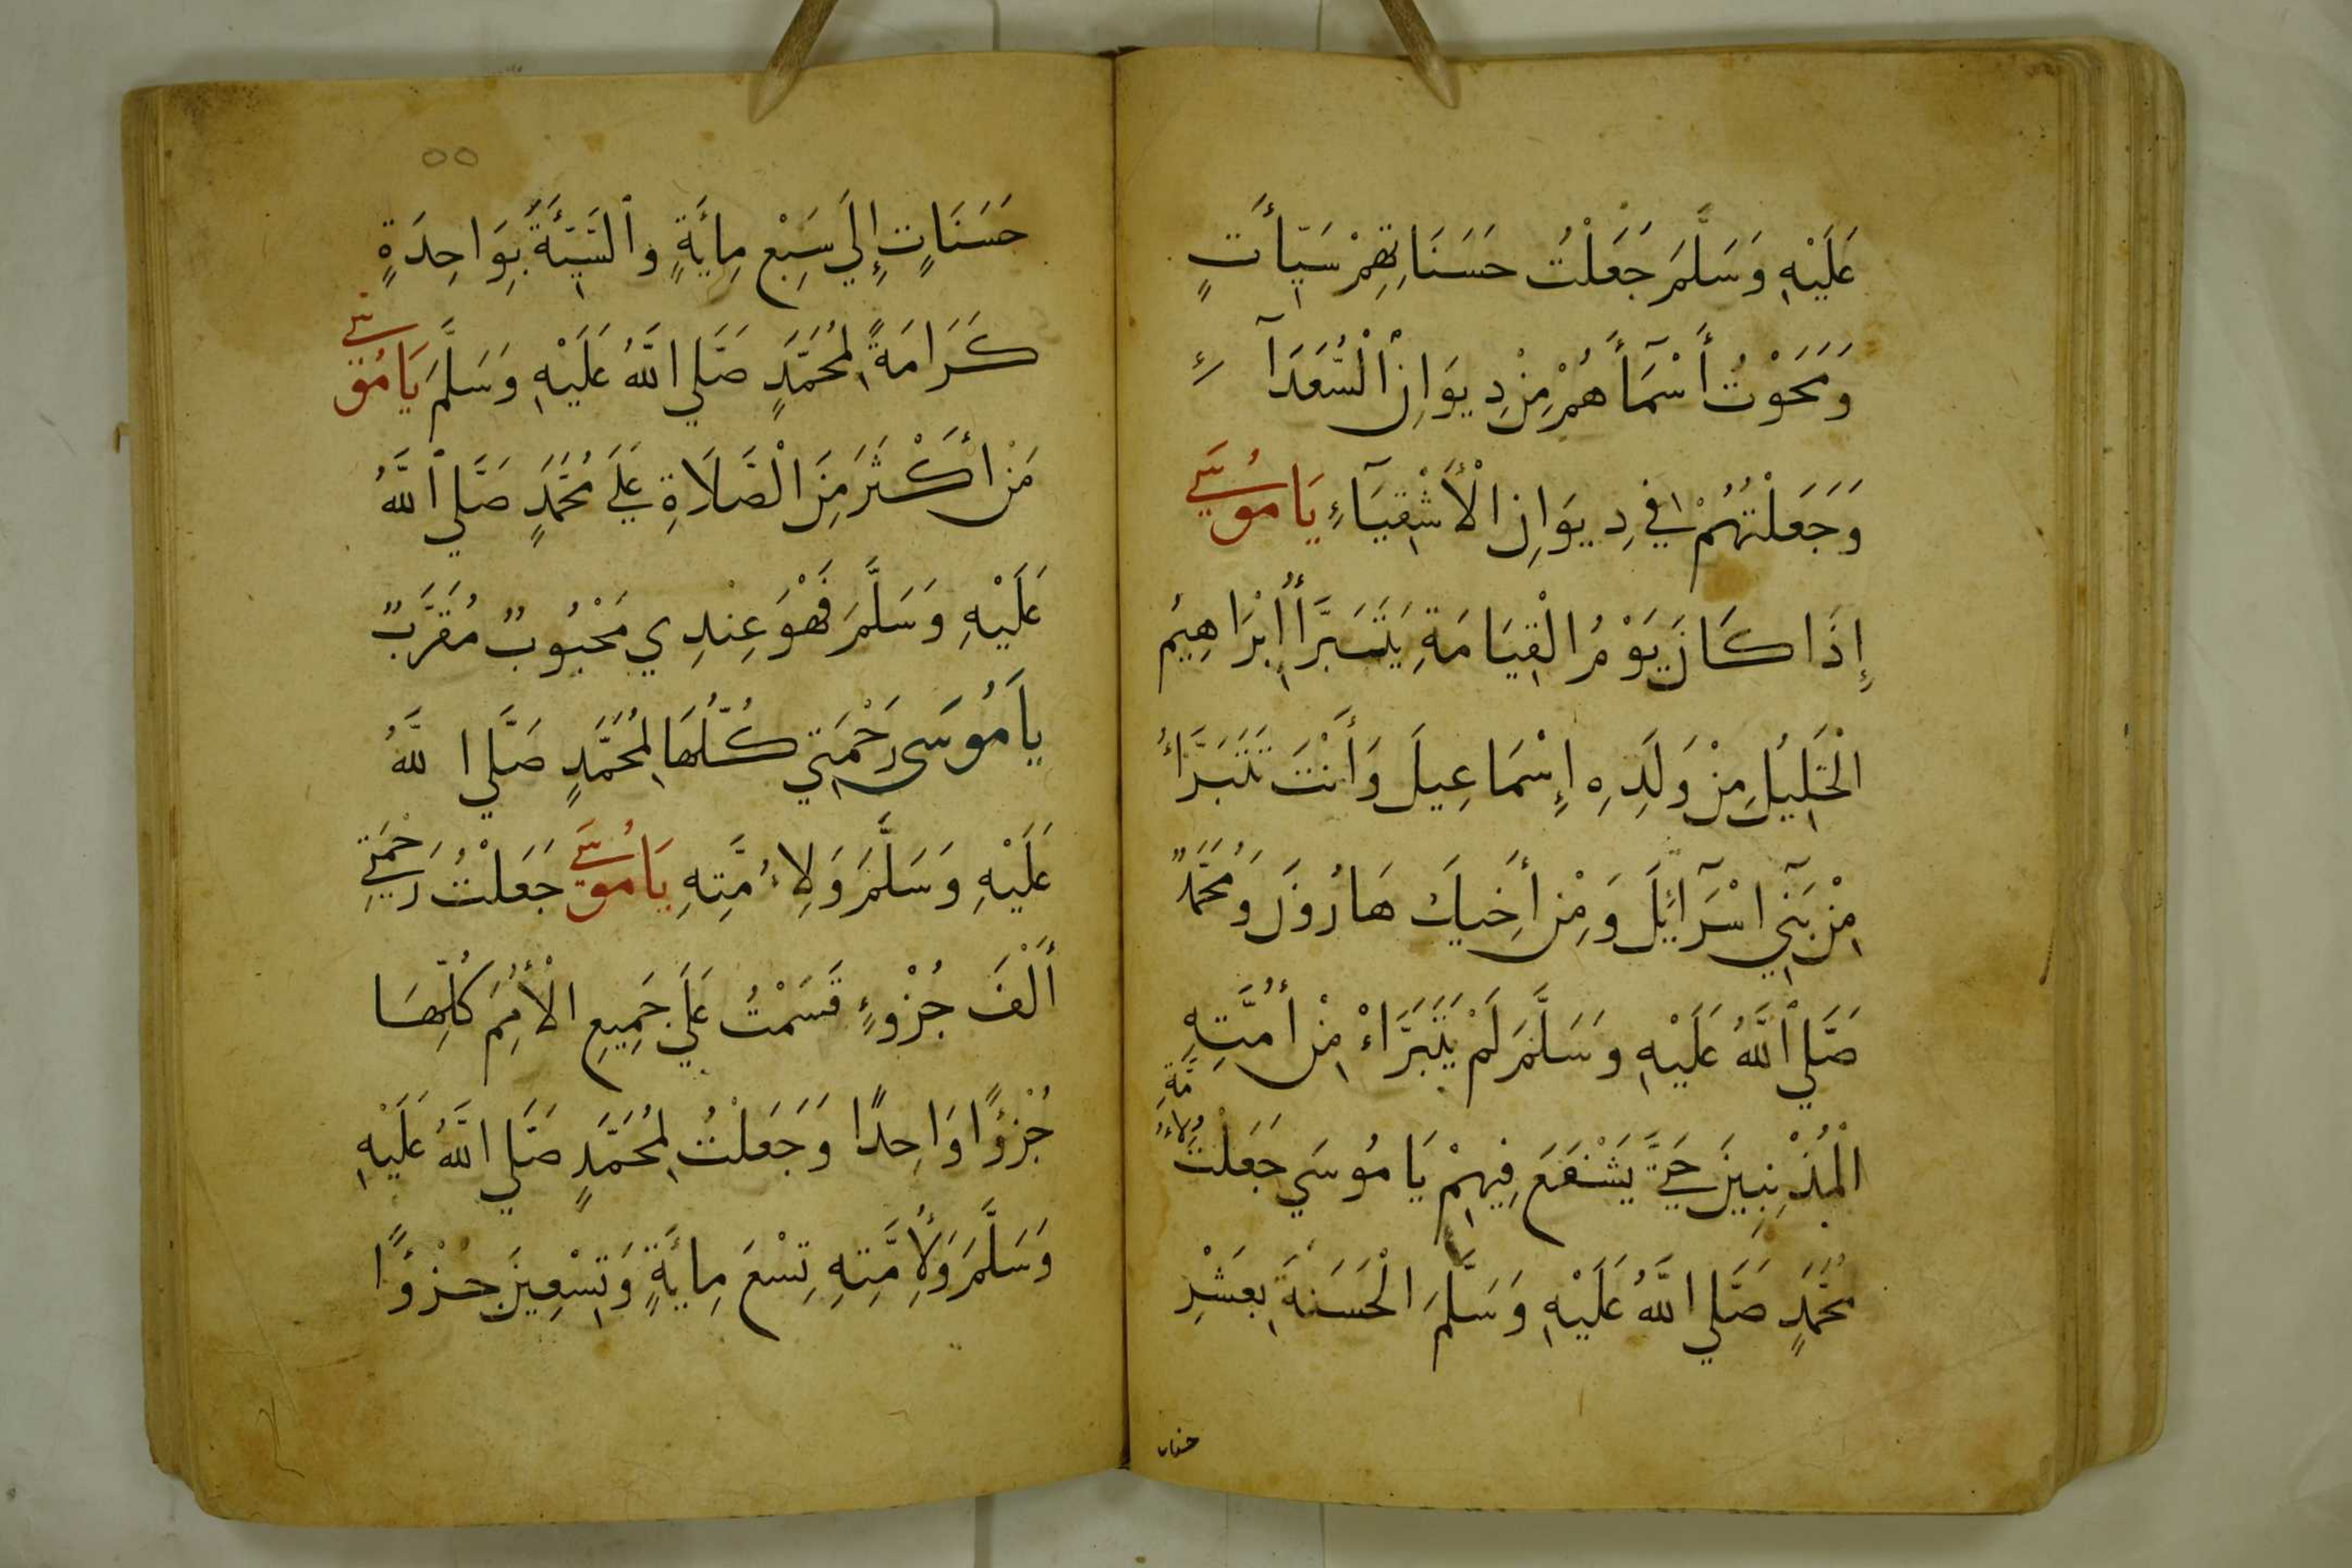 عَلَيْهِ وَسَلَّمَ جَعَلْتُ حَسَنَاتِهِمْ سَيِّأَتٍ
وَمَحَوْتُ أَسْمَآأَهُمْ مِنْ دِيوَانِ ٱلْسُّعَدَآءِ
وَجَعَلْتُهُمْ فِي دِيوَانِ الْأَشْقِيَآءِ يَا مُوسَي
إِذَا كَانَ يَوْمُ الْقِيَامَةِ يَتَبَرَّأُ إِبْرَاهِيمُ
الْخَلِيلُ مِنْ وَلَدِهِ إِسْمَاعِيلَ وَأَنْتَ تَتَبَرَّأُ
مِنْ بَنِي اسْرَآئِلَ وَمِنْ أَخِيكَ هَارُونَ وَمُحَمَّدٌ
صَلَّي ٱللَّهُ عَلَيْهِ وَسَلَّمَ لَمْ يَتَبَرَّاءْ مِنْ أُمَّتِهِ
الْمُذْنِبِينَ حَتَّي يَشْفَعَ فِيهِمْ يَا مُوسَي جَعَلْتُ لِاُمَّةِ
مُحَمَّدٍ صَلَّي اللَّهُ عَلَيْهِ وَسَلَّمَ الْحَسَنَةَ بِعَشْرِ
حسنات
٥٥
حَسَنَاتٍ إِلَي سَبْعِ مِائَةٍ وَٱلسَّيِّئَةَ بِوَاحِدَةٍ
كَرَامَةً لِمُحَمَّدٍ صَلَّي اللَّهُ عَلَيْهِ وَسَلَّمَ يَا مُوسَي
مَنْ أَكْثَرَ مِنَ الْصَّلَاةِ عَلَي مُحَمَّدٍ صَلَّي ٱللَّهُ
عَلَيْهِ وَسَلَّمَ فَهْوَ عِنْدِي مَحْبُوبٌ مُقَرَّبٌ
يَا مُوسَى رَحْمَتِي كُلُّهَا لِمُحَمَّدٍ صَلَّي اللَّهُ
عَلَيْهِ وَسَلَّمَ وَلِاُمَّتِهِ يَا مُوسَي جَعَلْتُ رَحْمَتِي
أَلْفَ جُزْوءٍ قَسَمْتُ عَلَي جَمِيعِ الْأُمَمِ كُلِّهَا
جُزْؤًا وَاحِدًا وَجَعَلْتُ لِمُحَمَّدٍ صَلَّي اللَّهُ عَلَيْهِ
وَسَلَّمَ وَلِأُمَّتِهِ تِسْعَ مِائَةٍ وَتِسْعِينَ جُزْؤًا